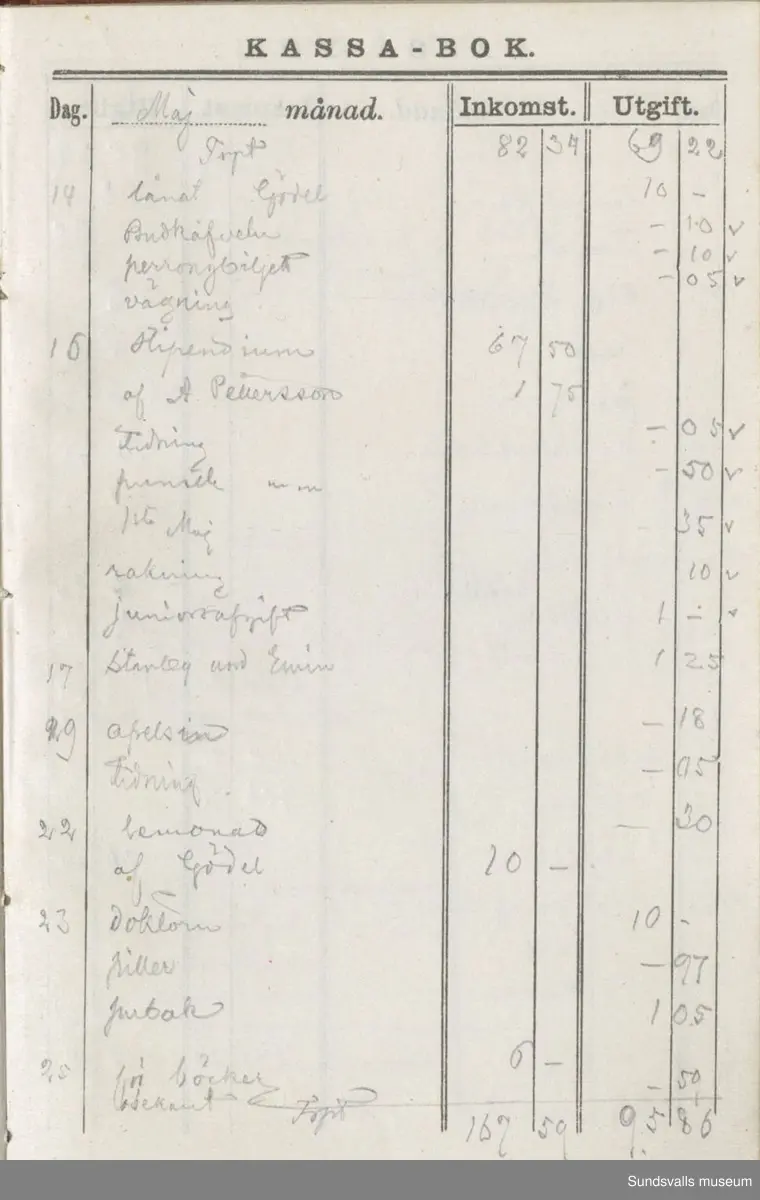 KASSA-BOK.
Dag. Maj månad. Inkomst. Utgift.
Trpt 82 34 69 22
14 lånat Gödel 10 -
Budkafveln - 10 v
perrongbiljett - 10 v
vägning - 05 v
16 Stipendium 67 50
af A Pettersson 1 75
Tidning - 05 v
m m - 50 v
1sta Maj 35 v
rakning 10 v
juniorsafgift 1 - v
17 Stanley 1 25
19 apelsin - 18
Tidning - 05
22 Lemonad - 30
af Gödel 10 -
23 Doktorn 10 -
piller - 97
1 05
25 för böcker 6 -
- 50
Trpt 167 59 95 86
Sundsvalls museum